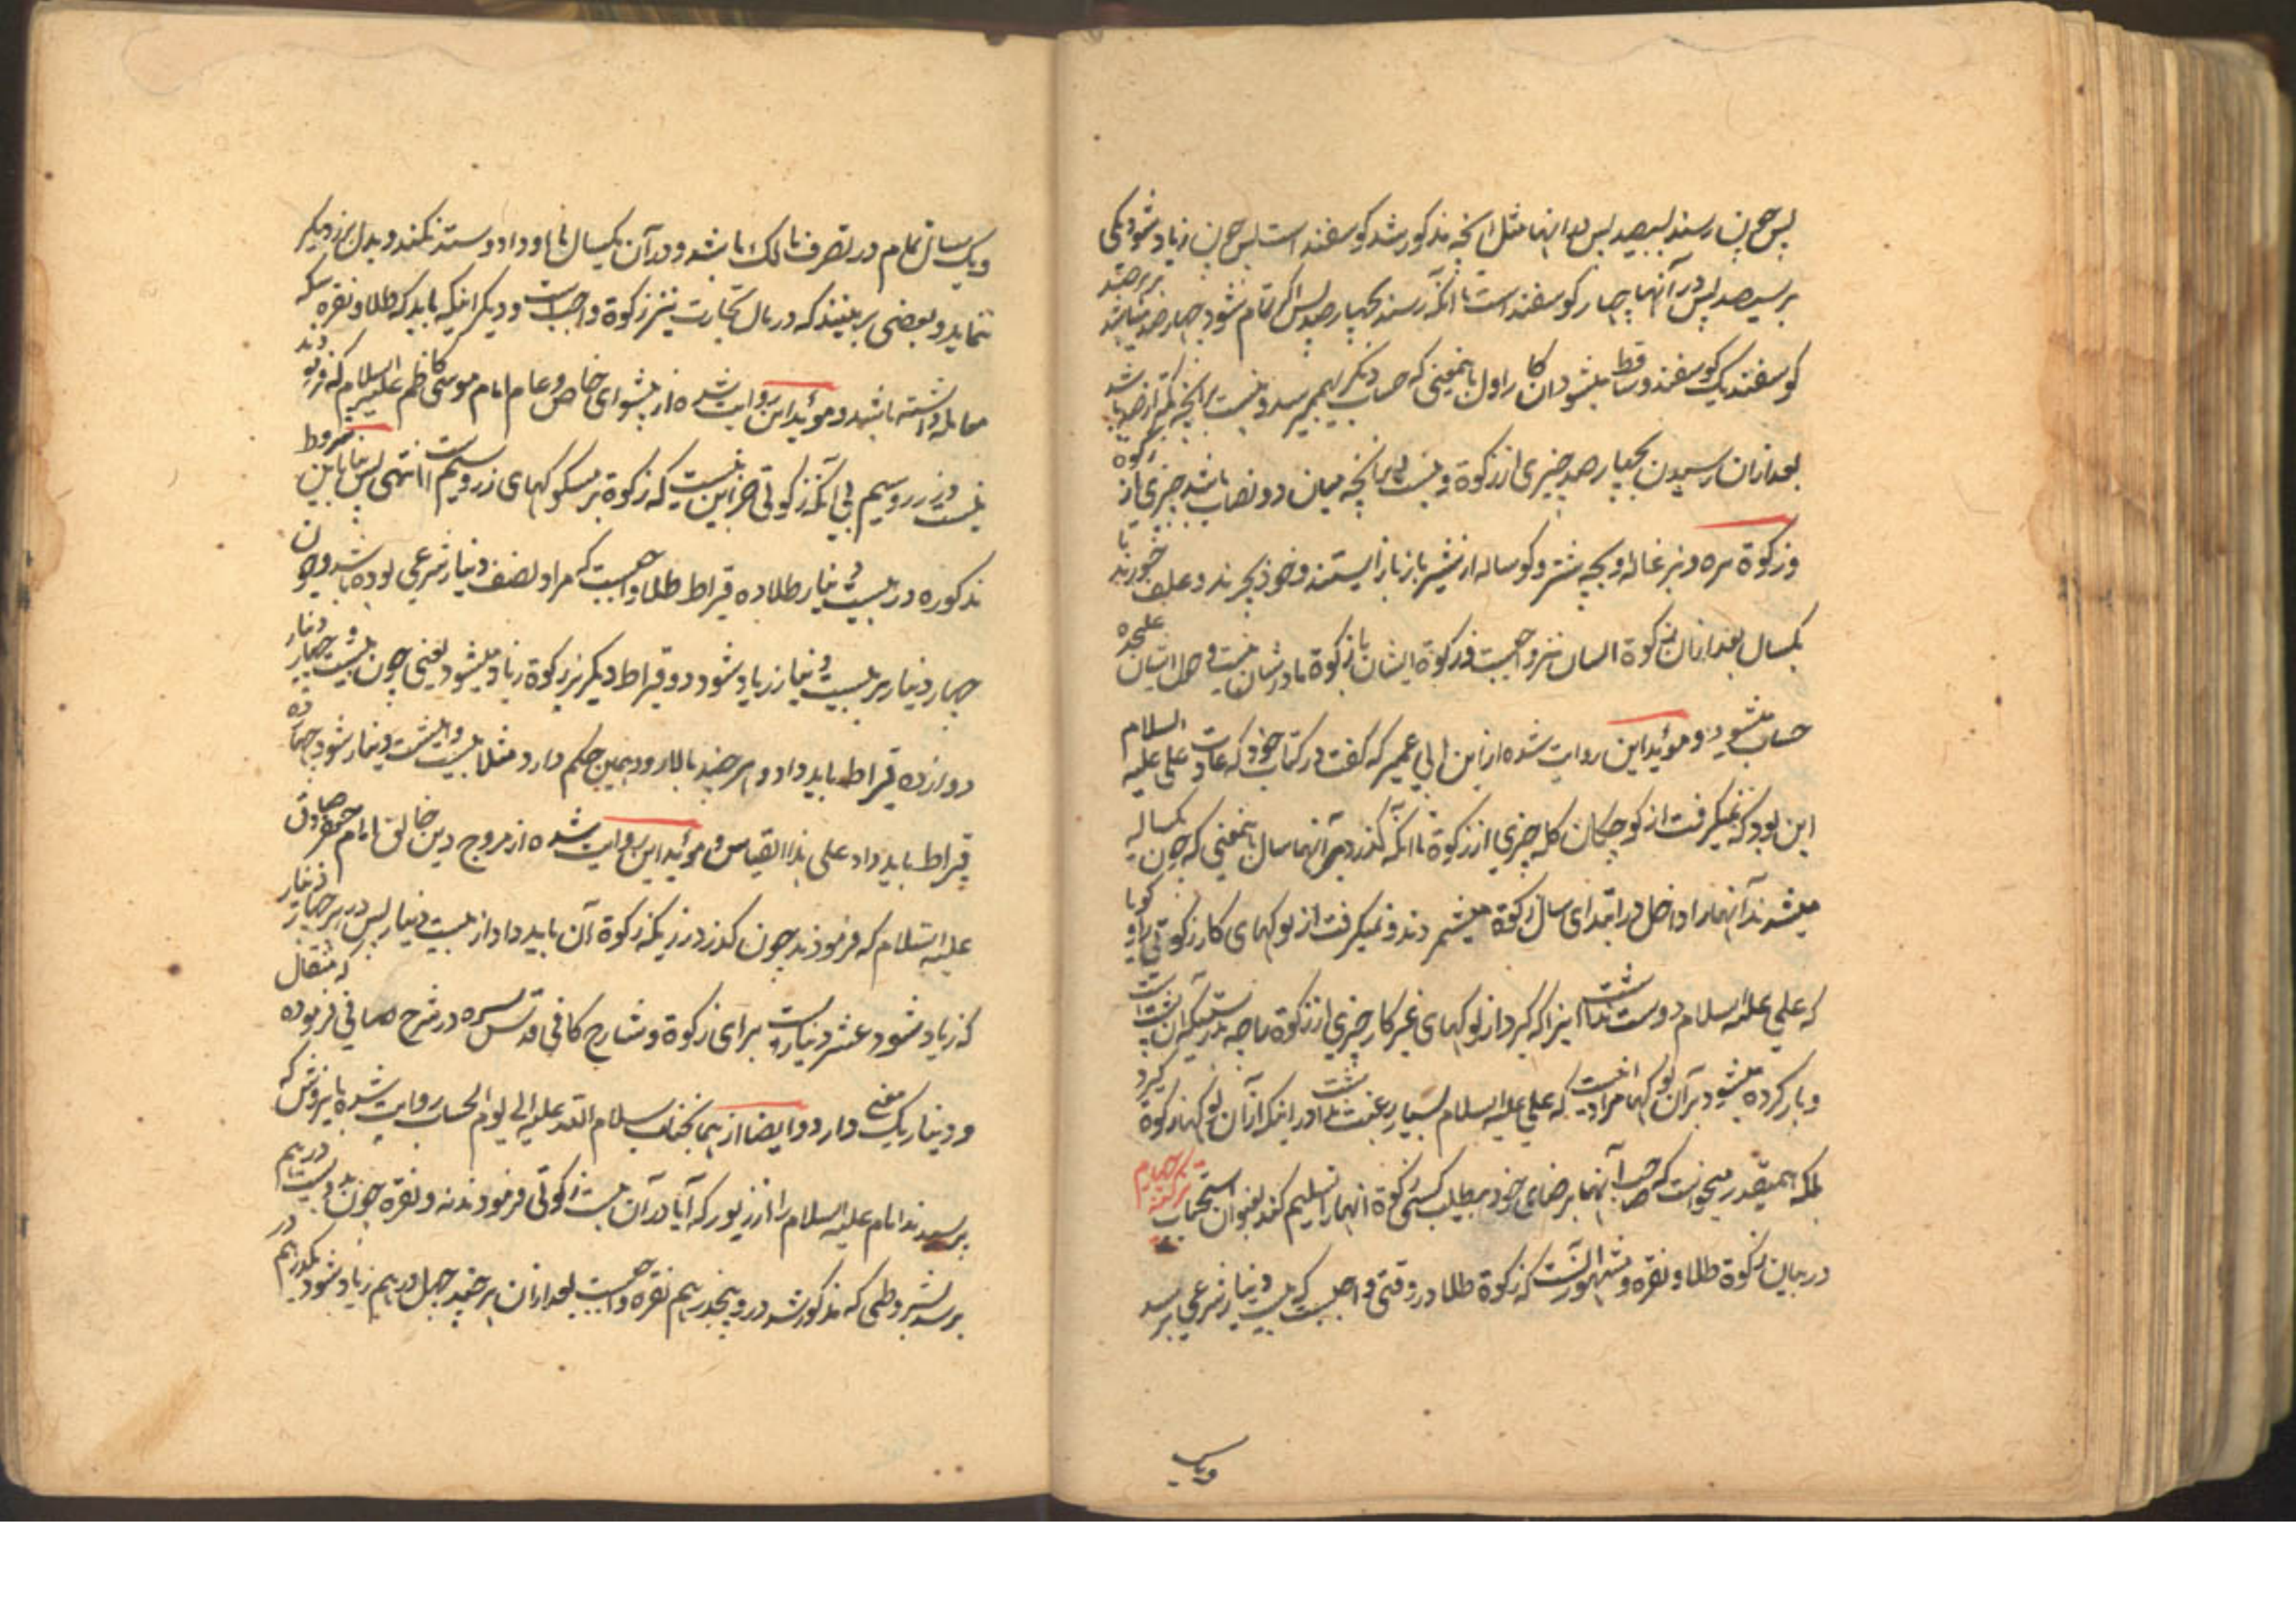 پس چون رسند بسیصد پس در اینها مثل آنچه مذکور شد کوسفند است پس چون زیاد شود یکی
بر سیصد پس در آنها چهار کوسفند است تا آنکه رسند بچهارصد پس اکر تمام شود چهارصد بر هر صد
کوسفند یک کوسفند و ساقط میشود آن کار اول باینمعنی که حساب دیکر بهم میرسد و نیست بر آنچه کمتر از صد باشد
بعد از آن رسیدن بچهارصد چیزی از زکوة و نیست بر آنچه میان دو نصاب باشد چیزی از زکوة
و زکوة بره و بزغاله و بچه شتر و کوساله از شیر باز نایستند و خود بچرند و علف خورند تا
یکسال بعد از آن زکوة ایشان نیز واجبست و زکوة ایشان با زکوة مادرشان نیست و حول ایشان علیحده
حساب میشود و مؤید این روایت شده از ابن ابی عمیر که کفت در کتاب خود که عادت علی علیه السلام
این بود که نمیکرفت از کوچکان کله چیزی از زکوة تا آنکه کذرد بر آنها سال باینمعنی که چون یکساله
میشدند آنها را داخل در ابتدای سال زکوة میشمردند و نمیکرفت از نوکهای کار زکوتی کویا راوی
که علی علیه السلام دوست نداشت اینرا که کیرد از نوکهای غیر کار چیزی از زکوة
و بار کرده میشود بر آن نوکها مراد اینست که علی علیه السلام بسیار رغبت نداشت در اینکه از آن نوکها زکوة کیرد
بلکه همینقدر میخواست که صاحب آنها برضای خود بمطلب کسی زکوة آنها را تسلیم کند بعنوان استحباب
در بیان زکوة طلا و نقره و مشهور آنست که زکوة طلا در وقتی واجبست که بیست دینار شرعی برسد
ویک
ویک سال تمام در تصرف مالک باشد و در آن یکسال با او داد و ستد نکند و بدل بزر دیکر
ننماید و بعضی بر اینند که در مال تجارت نیز زکوة واجبست و دیکر اینکه باید که طلا و نقره سکه
معامله داشته باشد و مؤید این روایت شده از پیشوای خاص و عام امام موسی کاظم علیه السلام که فرمودند
نیست در زر و سیم بی آنکه زکوتی جز این نیست که زکوة بر مسکوکهای زر و سیم است انتهی پس بنا باین شروط
مذکوره در بیست دینار طلا ده قیراط طلا واجبست که مراد نصف دینار شرعی بوده باشد و چون
چهار دینار بر بیست دینار زیاد شود دو قیراط دیکر نیز زکوة زیاد میشود یعنی چون بیست و چهار دینار
دوازده قیراط باید داد و هر چند بالا رود همین حکم دارد مثلا بیست و هشت دینار شود چهارده
قیراط باید داد علی هذا القیاس و مؤید این روایت شده از مروج دین خالق امام جعفر صادق
علیه السلام که فرمودند چون کذرد زریکه زکوة آن باید داد از بیست دینار پس در هر چهار دینار
که زیاد شود عشر دینار است برای زکوة و شارح کافی قدس سره در شرح صافی فرموده که مثقال
و دینار یک معنی دارد و ایضا از همانجناب سلام الله علیه الی یوم الحساب روایت شده باینروش که
پرسیدند امام علیه السلام را از زیور که آیا در آن هست زکوتی فرمودند نه و نقره چون بدویست درهم
برسد بشروطی که مذکور شد در او پنجدرهم نقره واجبست بعد از آن هر چند چهل درهم زیاد شود یکدرهم در